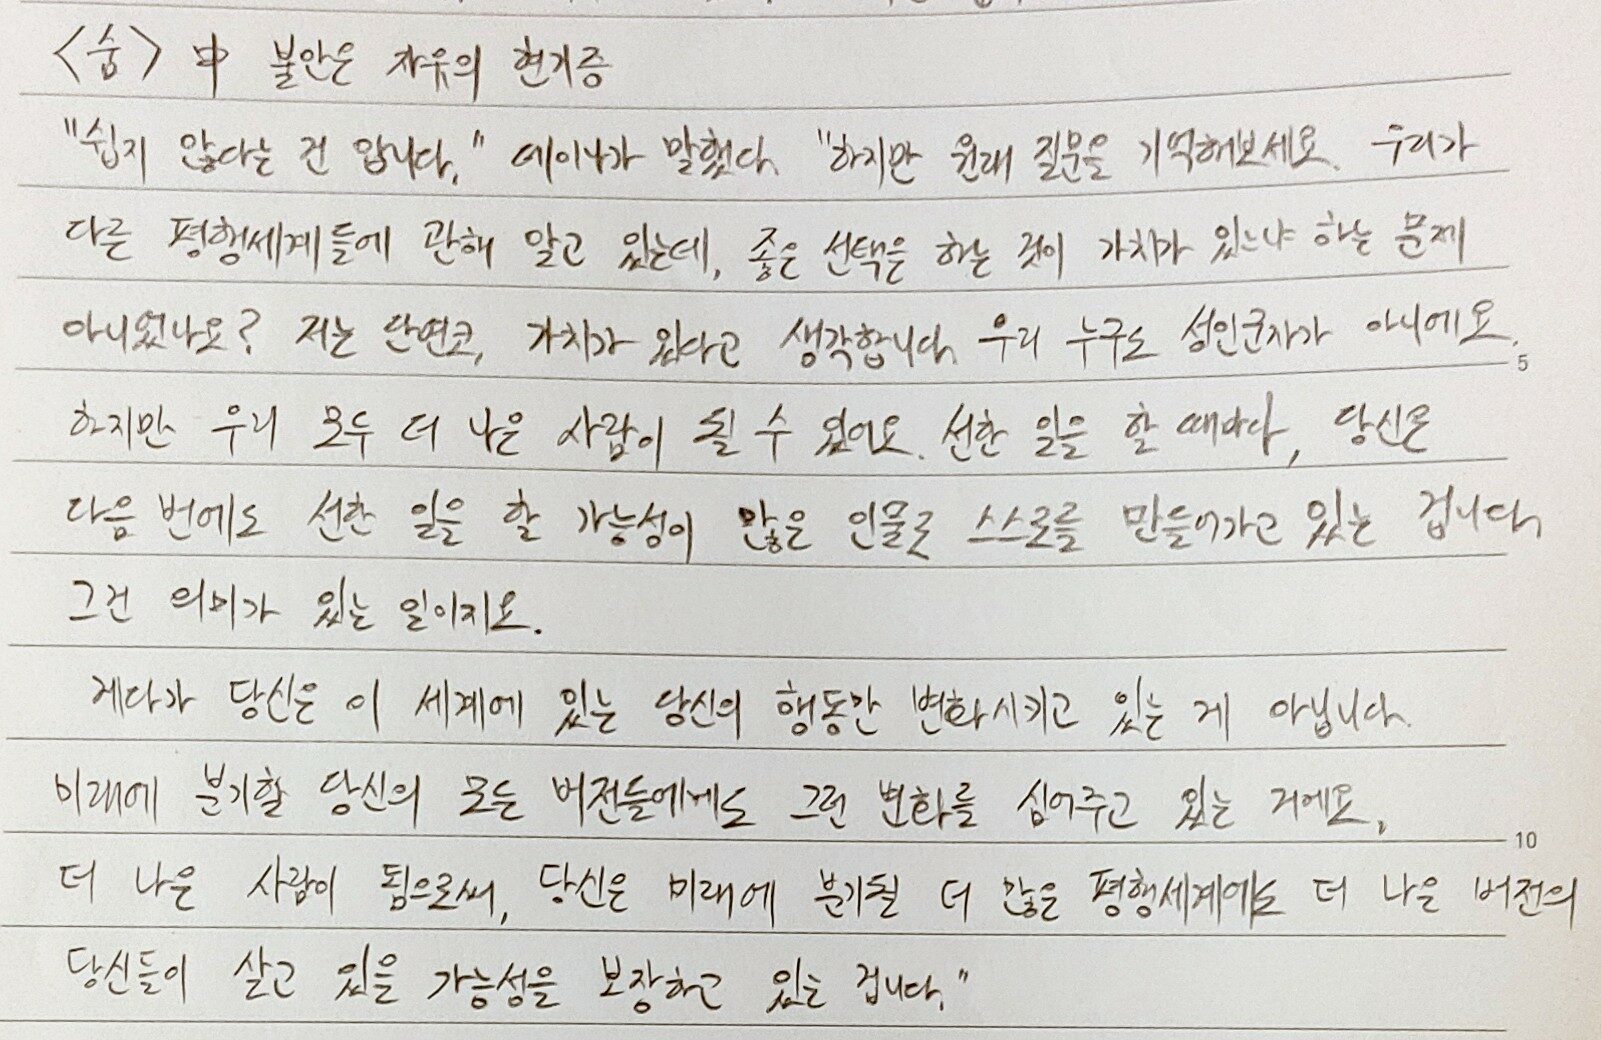 <숨> 中 불안은 자유의 현기증
"쉽지 않다는 건 압니다." 데이나가 말했다. "하지만 원래 질문을 기억해보세요. 우리가
다른 평행세계들에 관해 알고 있는데, 좋은 선택은 하는 것이 가치가 있느냐 하는 문제
아니었나요? 저는 단연코, 가치가 있다고 생각합니다. 우리 누구도 성인군자가 아니에요.
하지만 우리 모두 더 나은 사람이 될 수 있어요. 선한 일을 할 때마다, 당신은
다음 번에도 선한 일을 할 가능성이 많은 인물로 스스로를 만들어가고 있는 겁니다.
그건 의미가 있는 일이지요.
게다가 당신은 이 세계에 있는 당신의 행동만 변화시키고 있는 게 아닙니다.
미래에 분기할 당신의 모든 버전들에게도 그런 변화를 심어주고 있는 거에요.
더 나은 사람이 됨으로써, 당신은 미래에 분기될 더 많은 평행세계에도 더 나은 버전의
당신들이 살고 있을 가능성을 보장하고 있는 겁니다."
5
10